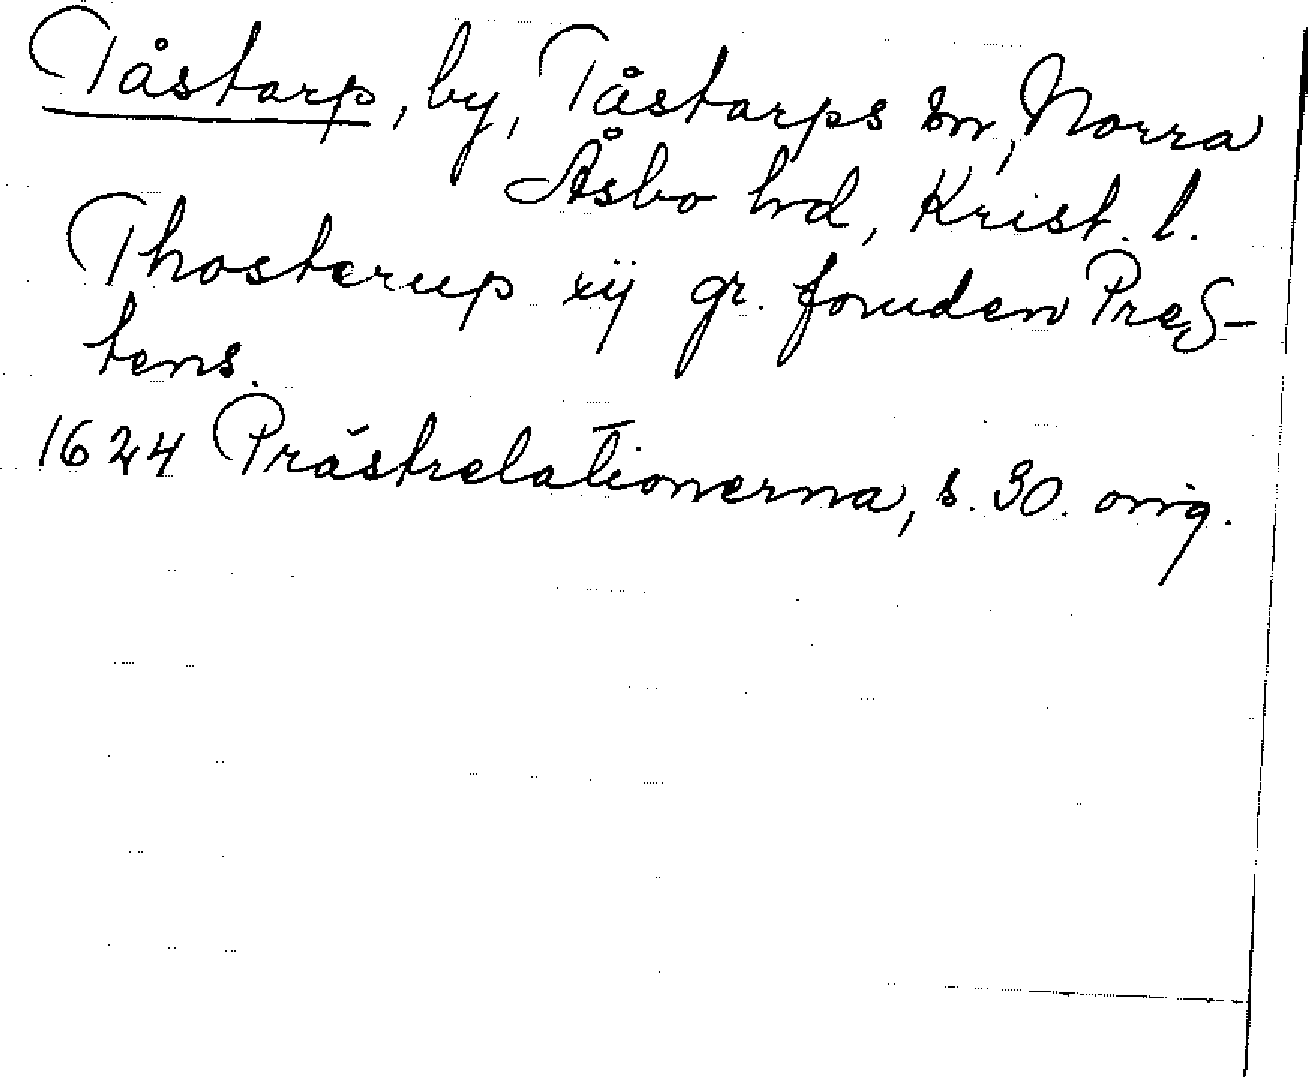 Tåstarp, by, Tåstarps sn, Norra
Åsbo hd, Krist. l.
Thosterup xij gr. foruden Præs-
tens.
1624 Prästrelationerna, s. 30. orig.